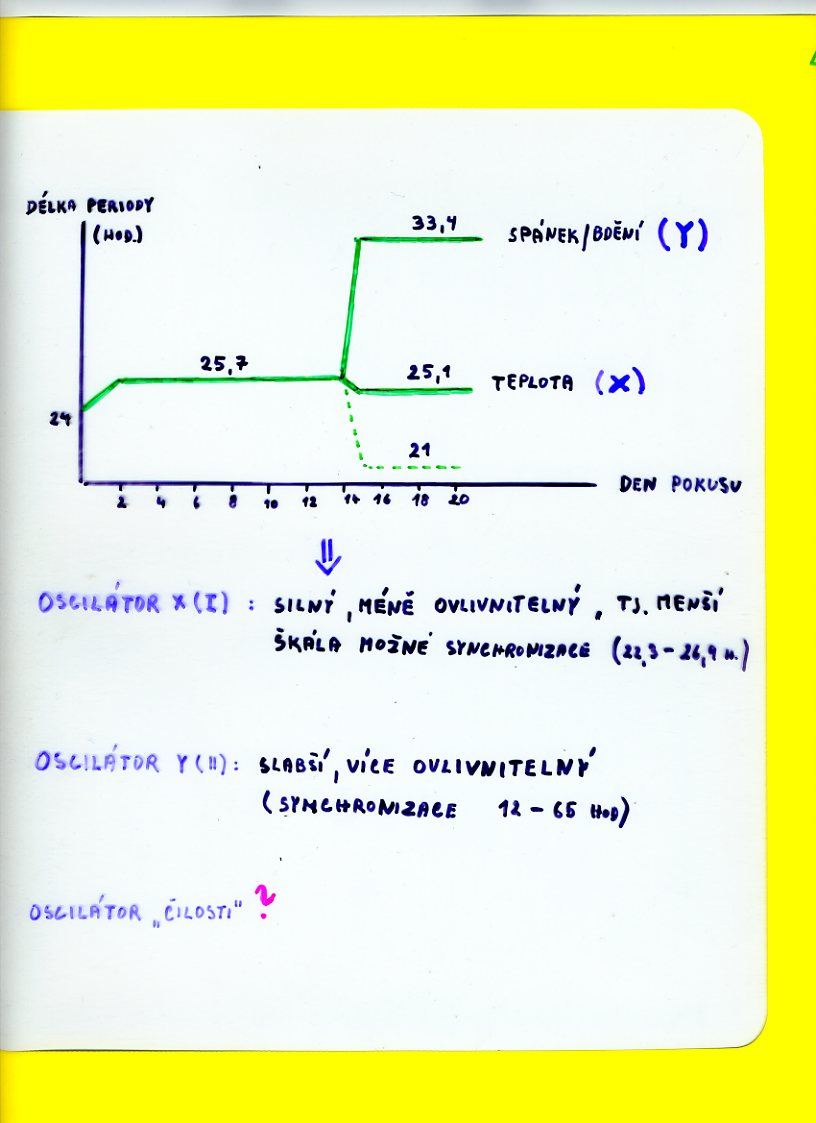 DÉLKA PERIODY
(HOD.)
33,4
SPÁNEK/BDĚNÍ (Y)
25,7
25,1
TEPLOTA (X)
24
21
2 4 6 8 10 12 14 16 18 20
DEN POKUSU
OSCILÁTOR X(I) : SILNÝ, MÉNĚ OVLIVNITELNÝ, TJ. MENŠÍ
ŠKÁLA MOŽNÉ SYNCHRONIZACE (22,3-26,9 H.)
OSCILÁTOR Y(II): SLABŠÍ, VÍCE OVLIVNITELNÝ
(SYNCHRONIZACE 12-65 HOD)
OSCILÁTOR „ČILOSTI" ?